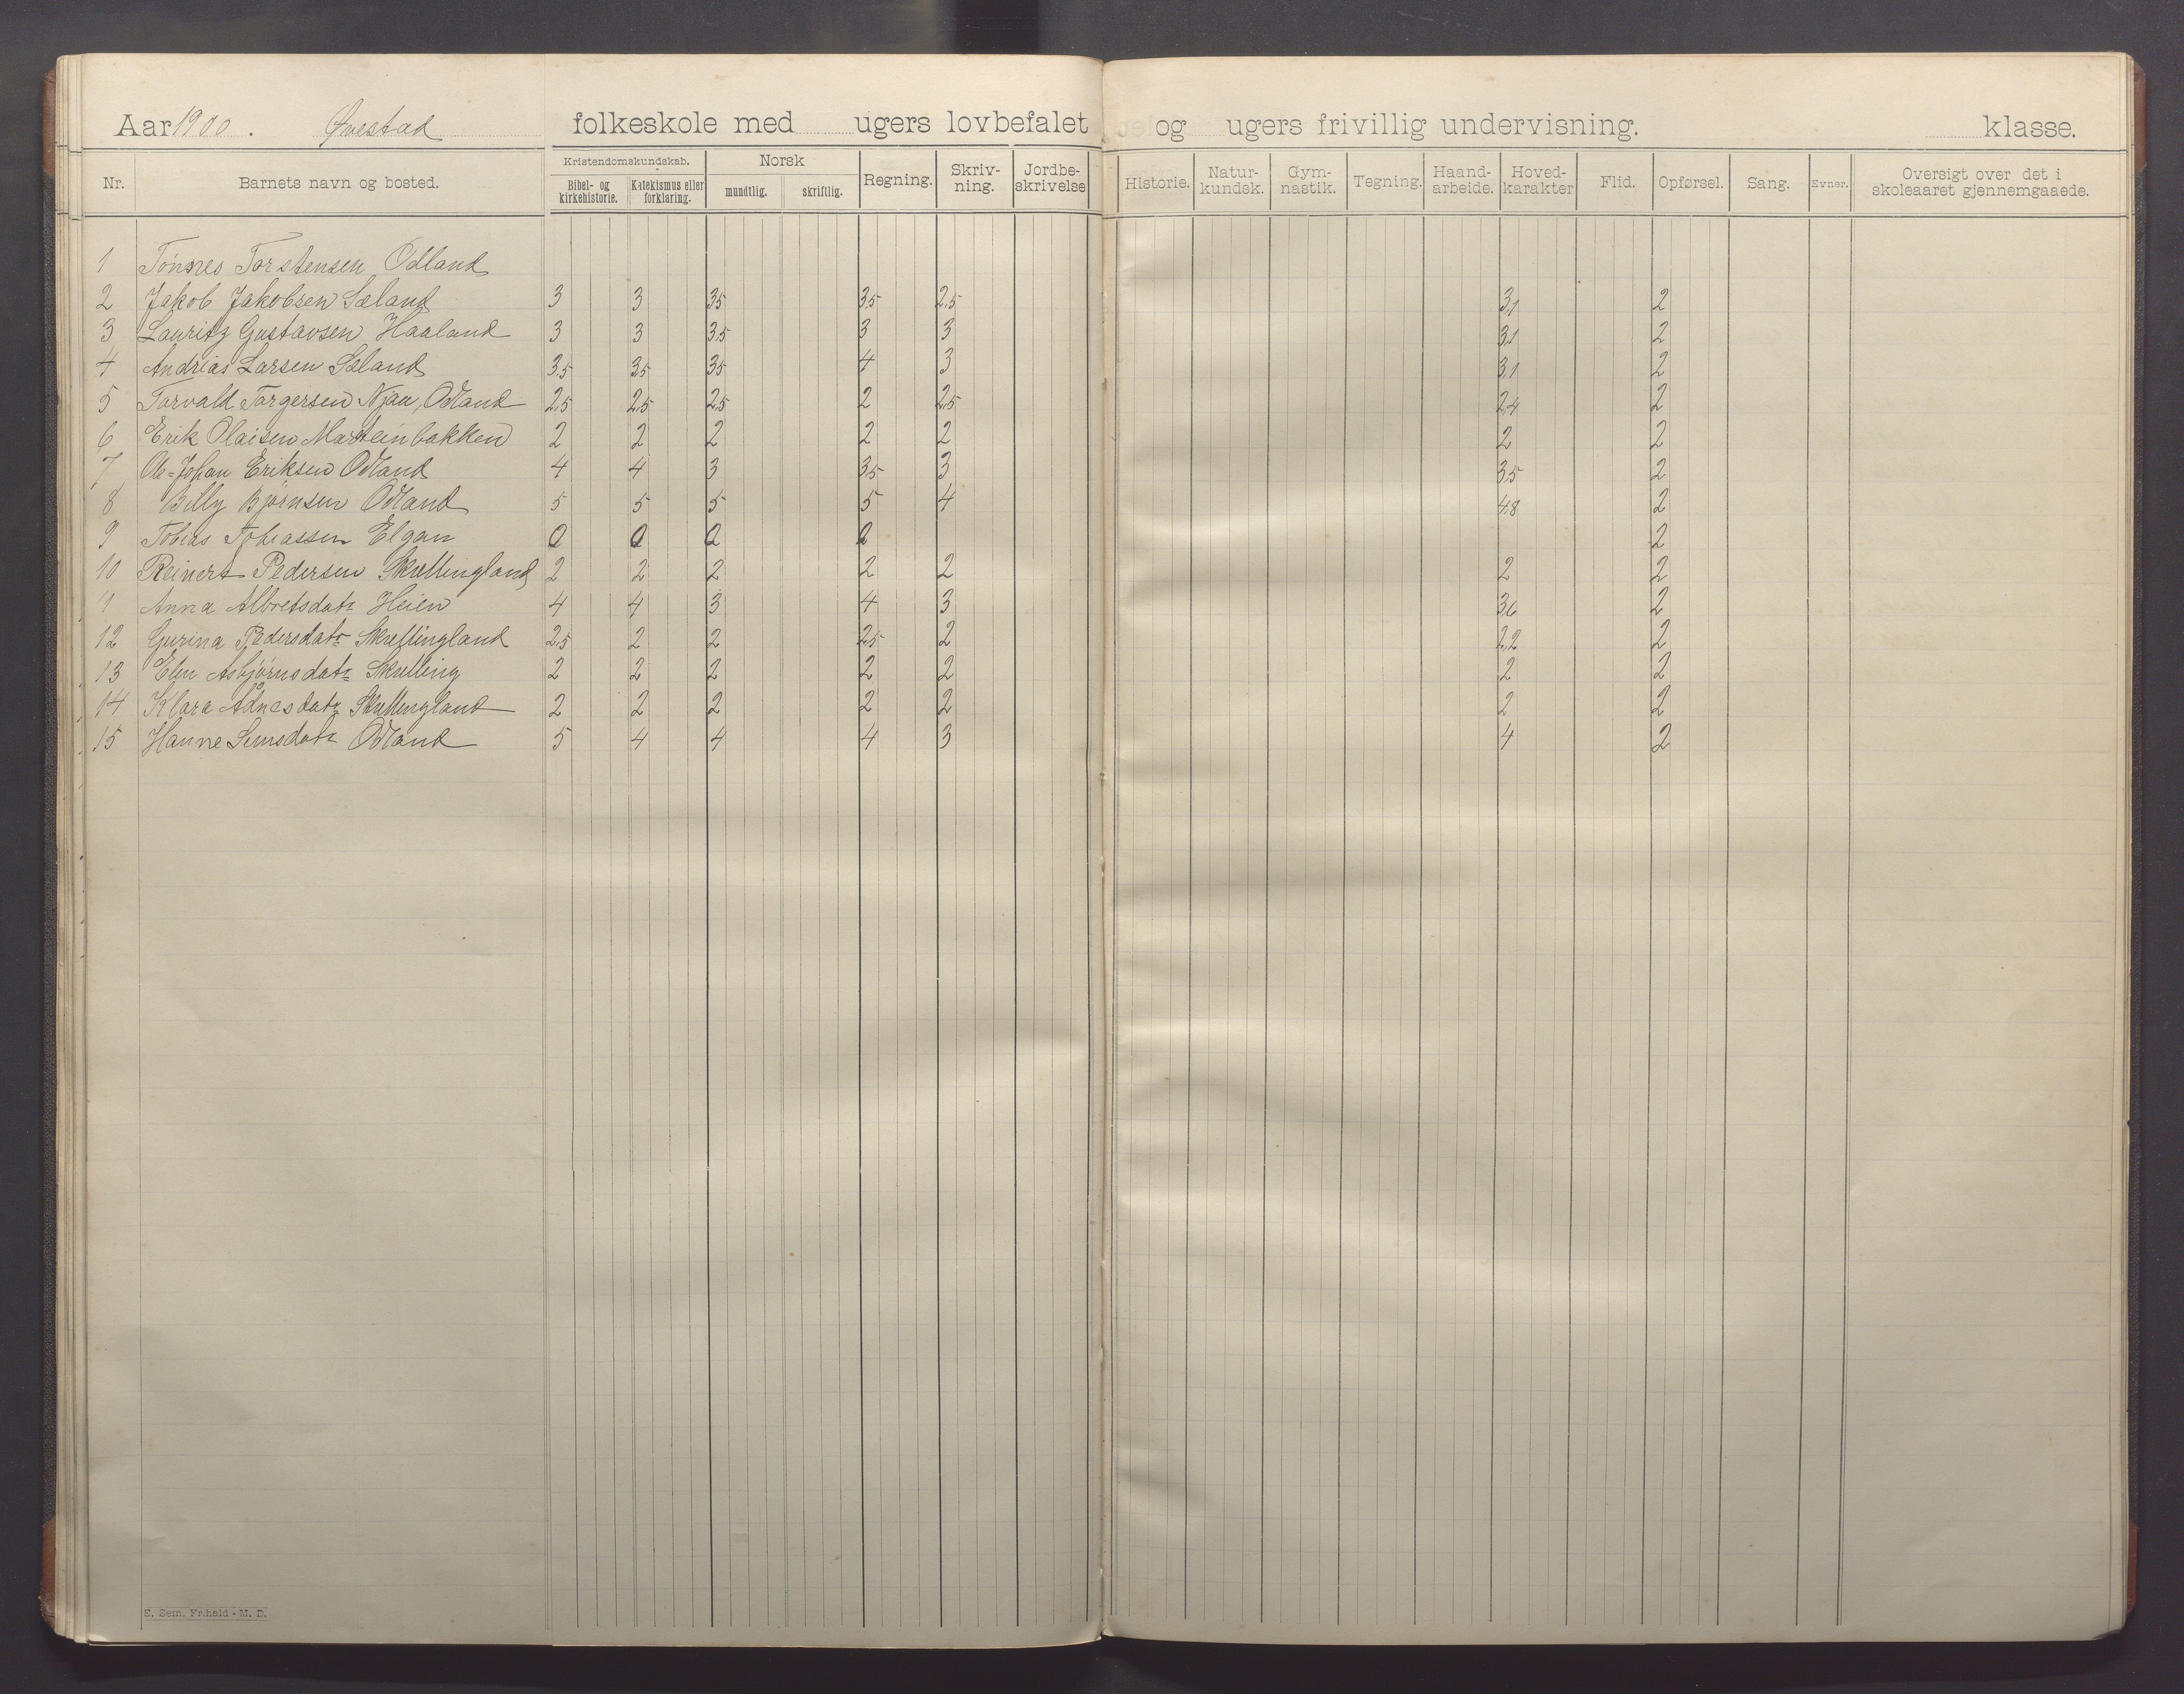 Aar 1900. Øvestad folkeskole med ugers lovbefalet og ugers frivillig undervisning. klasse.
Nr. Barnets navn og bosted. Kristendomskundskab. Bibel- og kirkehistorie. Katekismus eller forklaring. Norsk mundtlig. skriftlig. Regning. Skriv-ning. Jordbe-skrivelse Historie. Natur-kundsk. Gym-nastik. Tegning. Haand-arbeide. Hoved-karakter Flid. Opførsel. Sang. Evner. Oversigt over det i skoleaaret gjennemgaaede.
1 Tönnes Torstensen Odland
2 Jakob Jakobsen Sæland 3 3 3.5 3.5 2.5 3,1 2
3 Lauritz Gustavsen Haaland 3 3 3.5 3 3 3,1 2
4 Andreas Larsen Sæland 3.5 3.5 3.5 4 3 3,1 2
5 Torvald Torgersen Njaa, Odland 2,5 2,5 2,5 2 2,5 2,4 2
6 Erik Olaisen Marsteinbakken 2 2 2 2 2 2 2
7 Ole-Johan Eriksen Odland 4 4 3 3.5 3 3.5 2
8 Billy Bjørnsen Odland 5 5 5 5 4 4,8 2
9 Tobias Tobiassen Elgan 2
10 Reinert Pedersen Skrettingland 2 2 2 2 2 2 2
11 Anna Albretsdatr Heien 4 4 3 4 3 3,6 2
12 Gurina Pedersdatr Skrettingland 2,5 2 2 2,5 2 2,2 2
13 Elen Asbjørnsdatr Skretting 2 2 2 2 2 2 2
14 Klara Ådnesdatr Skrettingland 2 2 2 2 2 2 2
15 Hanne Odland 5 4 4 4 3 4 2
E. Sem. Fr.hald - M. D.